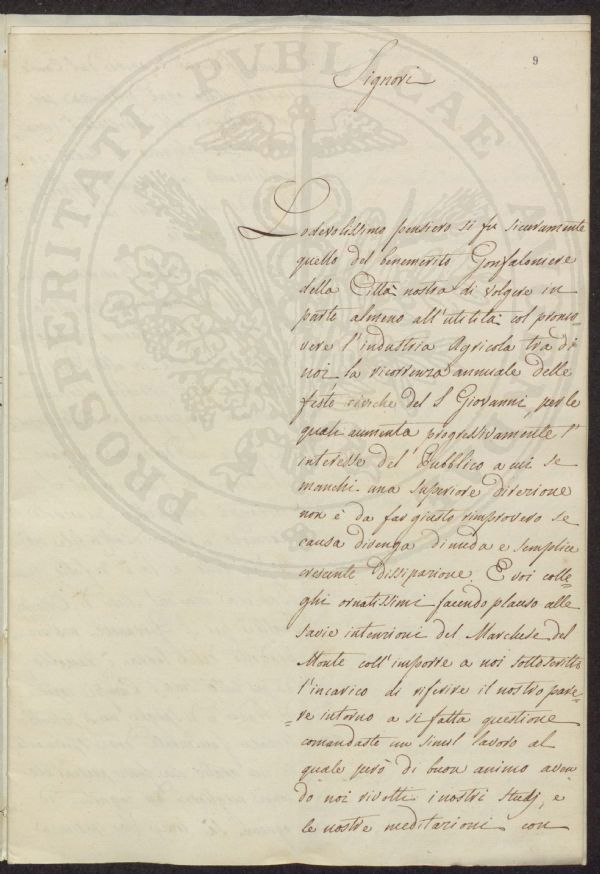 9
Signori
Lodevolissimo pensiero si fu sicuramente
quello del benemerito Gonfaloniere
della Città nostra di volgere in
parte almeno all'utilità col promo-
vere l'industria Agricola tra di
noi la ricorrenza annuale delle
feste civiche del S Giovanni, per le
quali aumenta progressivamente l'
interesse del Pubblico a cui se
manchi una superiore direzione
non è da far giusto rimprovero se
causa divenga di nuda e semplice
crescente dissipazione. E voi colle-
ghi ornatissimi facendo plauso alle
savie intenzioni del Marchese del
Monte coll'imporre a noi sottoscritti
l'incarico di riferire il nostro pare-
=re intorno a sì fatta questione
comandaste un simil lavoro al
quale però di buon animo aven
do noi rivolti i nostri studj, e
le nostre meditazioni con
PROSPERITATI PVBLICAE